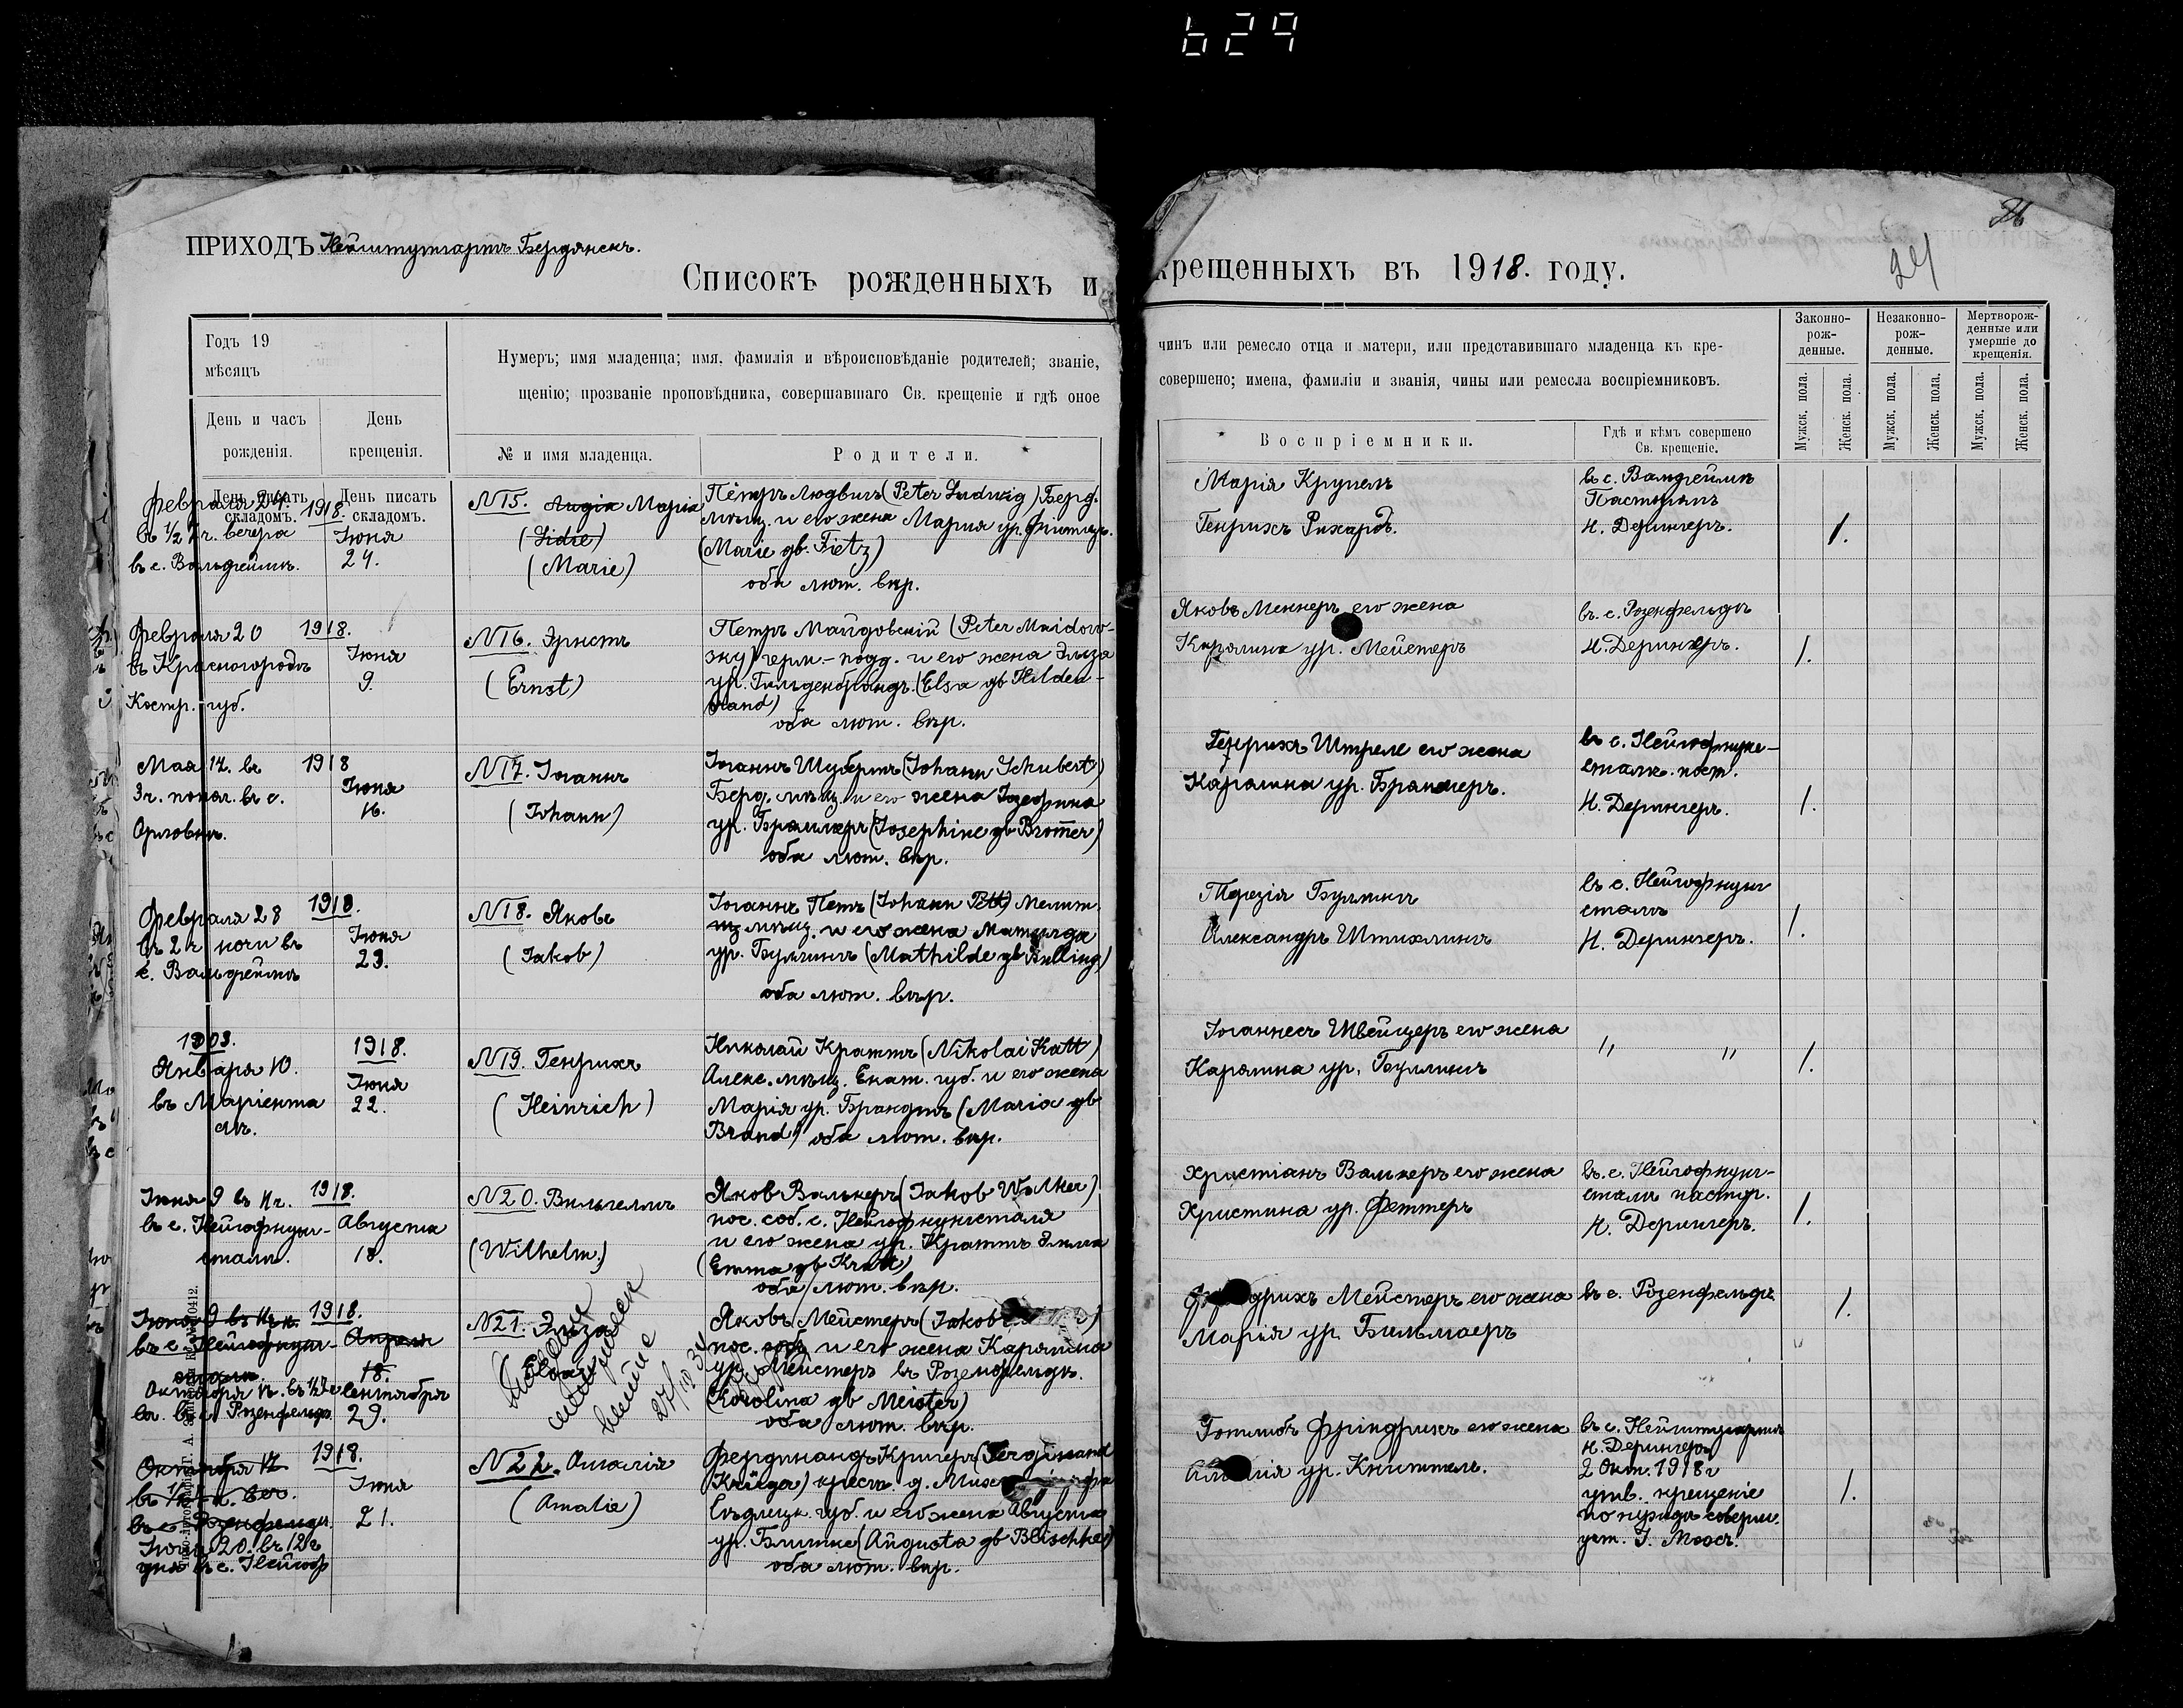 629
24
ПРИХОДЪ Нейштутгартъ Бердянскъ.
Списокъ рожденныхъ и крещенныхъ въ 1918. году.
Годъ 19
мѣсяцъ
День и часъ
рожденія.
День
крещенія.
День писать
складомъ.
День писать
складомъ.
Нумеръ; имя младенца; имя, фамилія и вѣроисповѣданіе родителей; званіе,
щенію; прозваніе проповѣдника, совершавшаго Св. крещеніе и гдѣ оное
№ и имя младенца.
Родители.
чинъ или ремесло отца и матери, или представившаго младенца къ кре-
совершено; имена, фамиліи и званія, чины или ремесла воспріемниковъ.
Воспріемники.
Гдѣ и кѣмъ совершено
Св. крещеніе.
Законно-
рож-
денные.
Незаконно-
рож-
денные.
Мертворож-
денные или
умершіе до
крещенія.
Мужск. пола.
Женск. пола.
Мужск. пола.
Женск. пола.
Мужск. пола.
Женск. пола.
Февраля 24.
вечера
въ с. Вальдгеймъ.
1918.
Іюня
24.
N15. Лидія Марія
(Lidie)
(Marie)
Петръ Людвигъ (Peter Ludwig) Берд.
мѣщ. и его жена Мария ур. Фіотцъ.
(Marie gb. Fietz)
оба лют. вѣр.
Марія Крупель
Генрихъ Рихардъ.
въ с. Вальдгеймъ
Н. Дерингеръ.
1.
Февраля 20
въ Красногородъ
Костр. губ.
1918.
Іюня
9.
N16. Эрнстъ
(Ernst)
Петръ Майдовскій (Peter Maidow-
герм.-подд. и его жена Эльза
ур. Гильденбрандъ. (Elsa gb Hilden-
brand)
оба лют. вѣр.
Яковъ его жена
Каролина ур. Мейстеръ
въ. с. Розенфельдъ
Н. Дерингеръ.
1.
Мая 14. въ
3 ч. попол. въ с.
Орловкъ.
1918
Іюня
16.
N17. Іоганнъ
(Johann)
Іоганнъ Шубертъ (Johann Schubert)
Берд. мѣщ. и его жена Іозефина
ур. Броммеръ (Josephine gb Bromer)
оба лют. вѣр.
Генрихъ Штреле его жена
Каролина ур.
въ с. Нейгофнунг-
сталь. паст.
Н. Дерингеръ.
1.
Февраля 28
въ 2 ч ночи въ
с. Вальдгеймъ
1918.
Іюня
23.
N18. Яковъ
(Jakob)
Іоганнъ Петъ (Johann Pett) Мелит.
мѣщ. и его жена Матильда
ур. Буллингъ (Mathilde gb Bulling)
оба лют. вѣр.
Терезія Буллингъ
Александръ Штихлингъ
въ с. Нейгофнунг
сталь
Н. Дерингеръ.
1.
1903.
Января 10.
въ Маріента
лъ.
1918.
Іюня
22.
N19. Генрихъ
(Heinrich)
Николай Краттъ (Nikolai Katt)
Алекс. мѣщ. Екат. губ. и его жена
Марія ур. Брандтъ (Maria gb
Brand) оба лют. вѣр.
Іоганнесъ Швейцеръ его жена
Каролина ур. Буллингъ
" "
1.
Іюня 9 въ 11 ч.
въ с. Нейгофнунг-
сталь.
1918.
Августа
18.
N20. Вильгельмъ
(Wilhelm.)
Яковъ Валькеръ (Jakob Walker)
пос. соб. с. Нейгофнунгсталя
и его жена ур. Краттъ Эмма
(Emma gb Kratt)
оба лют. вѣр.
Христіанъ Валькеръ его жена
Христина ур. Феттеръ
въ. с. Нейгофнунг-
сталь пастор.
Н. Дерингеръ.
1.
Іюня 9 въ 11 ч.
въ с. Нейгофнунг-
сталь.
1918.
Апреля
18.
въ с. Розенфельдъ
Сентября
29.
N21. Эльза
27/10 34
Яковъ Мейстеръ (Jakob
пос. соб. и его жена Каролина
ур. Мейстеръ въ Розенфельдъ.
(Karolina gb Meister)
оба лют. вѣр.
Мейстеръ его жена
Марія ур. Бильмаеръ
въ с. Розенфельдъ
1.
Октября 12
въ с. Розенфельдъ.
Іюня 20. въ 12 ч
дня въ с. Нейгоф
1918.
Іюня
21.
N22. Амалія
(Amalie)
Фердинандъ Кригеръ (Ferdinand
Krüger) крест. д.
губ. и его жена Августа
ур. Блишке (Augusta gb Blischke)
оба лют. вѣр.
Готлибъ Фридрихъ его жена
ур. Книттель.
въ с. Нейштутгартъ
Н. Дерингеръ
2 Окт. 1918 г
утв. крещеніе
по нуждѣ соверш.
1.